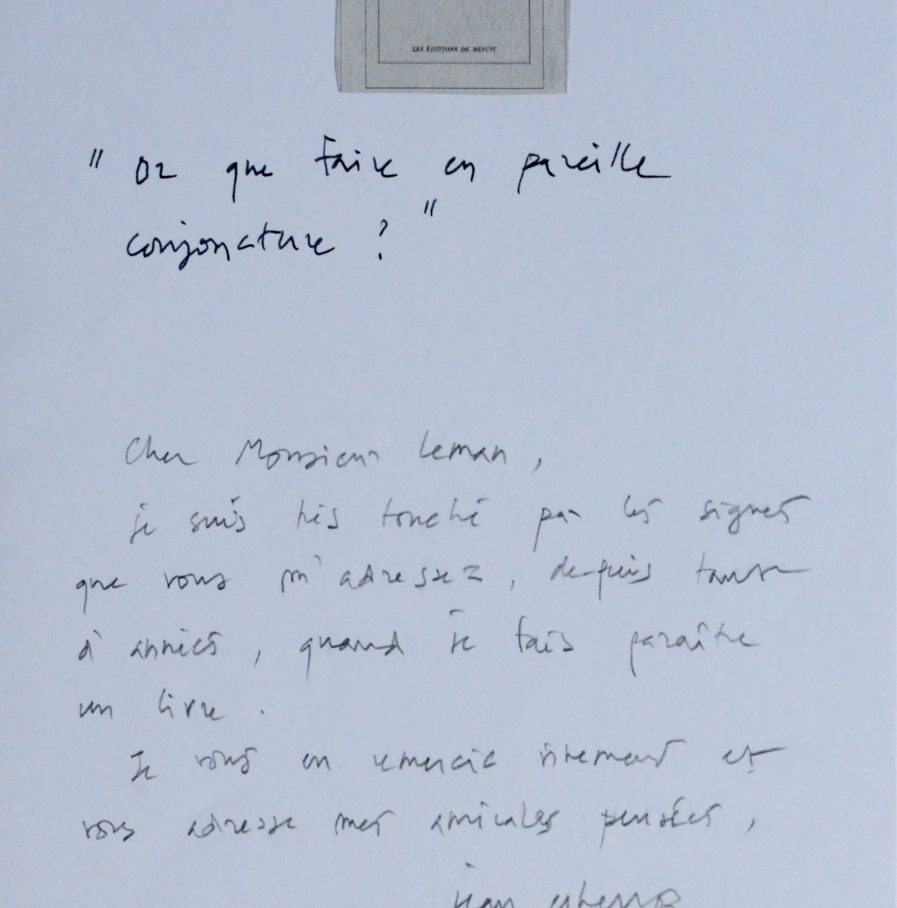 LES ÉDITIONS DE MINUIT
" Or que faire en pareille
conjoncture ? "
Cher Monsieur Leman,
je suis très touché par les signes
que vous m'adressez, depuis tant
d'années, quand je fais paraître
un livre.
Je vous en remercie vivement et
vous adresse mes amicales pensées,
jean echenoz